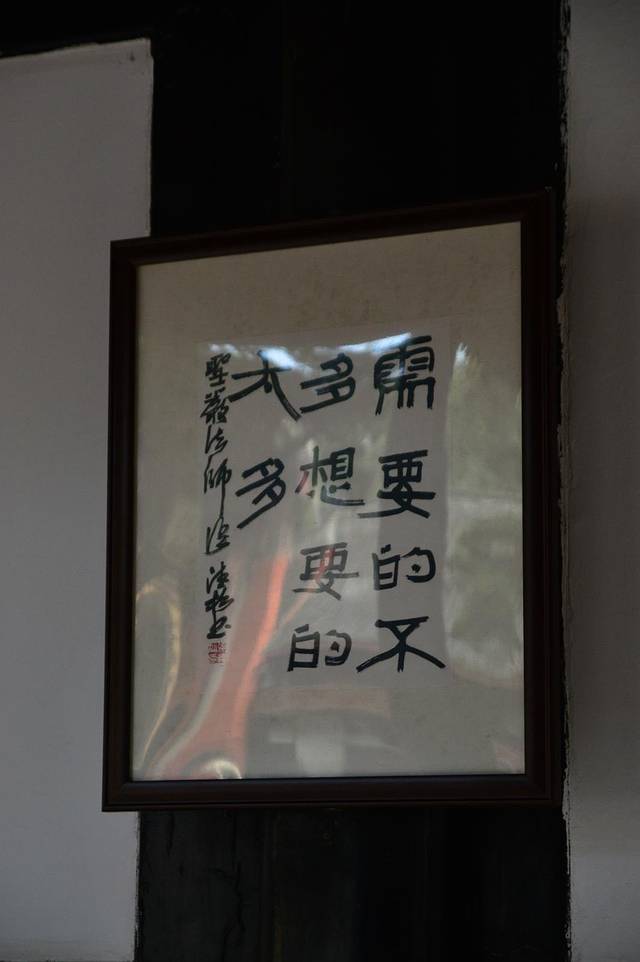 需要的不
多想要的
太多
聖嚴法師語